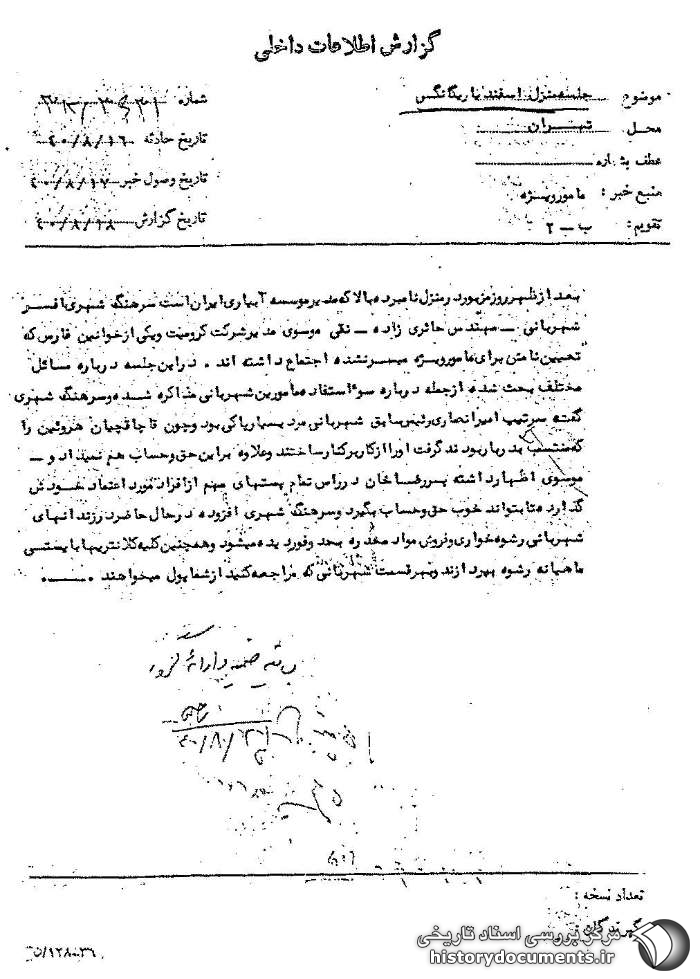 گزارش اطلاعات داخلی
موضوع جلسه منزل اسفندیار یگانگی
شماره
محل تهران
تاریخ حادثه ۴۰/۸/۱۶
عطف بشماره
تاریخ وصول خبر ۴۰/۸/۱۷
منبع خبر : مامور ویژه
تاریخ گزارش ۴۰/۸/۱۸
تقویم : ب - ۲
بعد از ظهر روز مزبور در منزل نامبرده بالا که مدیر موسسه آبیاری ایران است سرهنگ شهری افسر
شهربانی - مهندس حائری زاده - نقی موسوی مدیر شرکت کرومیت و یکی از خوانین فارس که
تعیین نامش برای مامور ویژه میسر نشده اجتماع داشته اند . در این جلسه درباره مسائل
مختلف بحث شده از جمله درباره سوء استفاده مامورین شهربانی مذاکره شده و سرهنگ شهری
گفته سرتیپ امیر انصاری رئیس سابق شهربانی مرد بسیار پاکی بود و چون قاچاقچیان هروئین را
که منتسب بدربار بودند گرفت او را از کار برکنار ساختند و علاوه بر این حق و حساب هم نمیداد و -
موسوی اظهار داشته پسر رضا خان در راس تمام پستهای مهم از افراد مورد اعتماد خودش
گذارده تا بتواند خوب حق و حساب بگیرد و سرهنگ شهری افزوده در حال حاضر در زندانهای
شهربانی رشوه خواری و فروش مواد مخدره بحد وفور دیده میشود و همچنین کلیه کلانتریها بایستی
ماهیانه رشوه بپردازند و بهر قسمت شهربانی که مراجعه کنید از شما پول میخواهند .
۴۰/۸/
تعداد نسخه :
گیرندگان :
۵/۱۲۸۰۳۶
مرکز بررسی اسناد تاریخی
historydocuments.ir